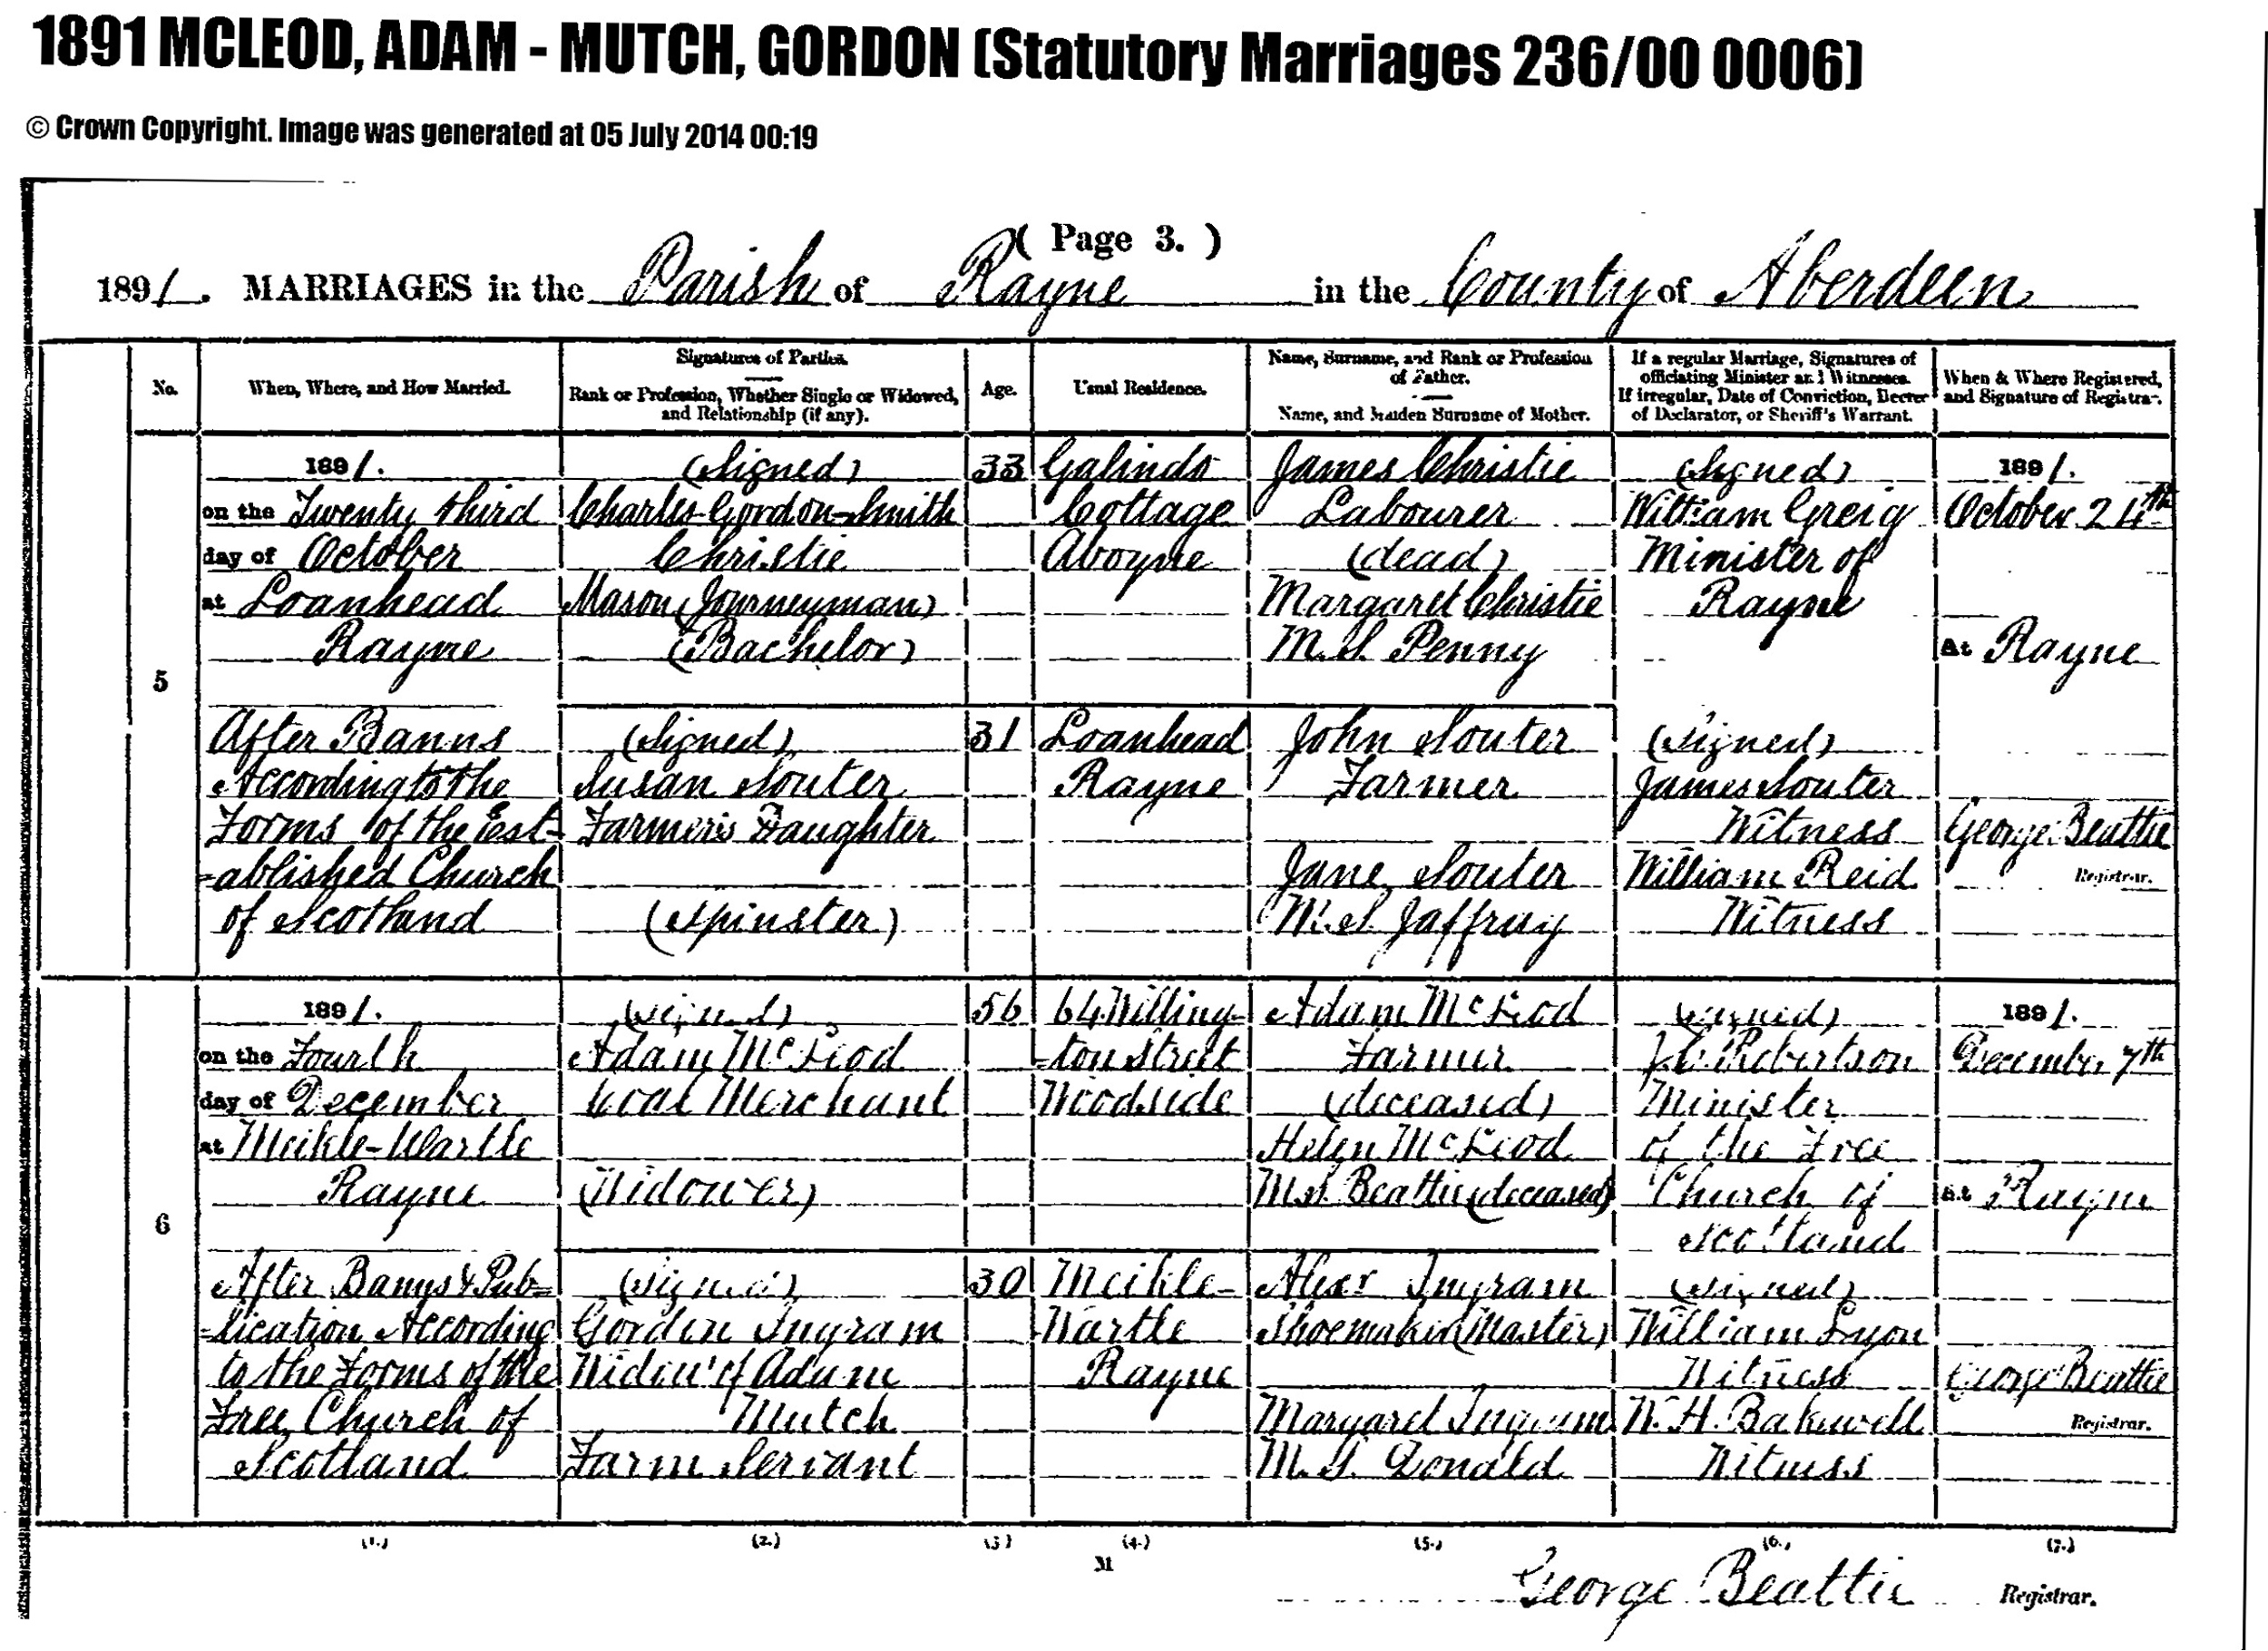 1891 MCLEOD, ADAM - MUTCH, GORDON (Statutory Marriages 236/00 0006)
© Crown Copyright. Image was generated at 05 July 2014 00:19
( Page 3. )
1891. MARRIAGES in the Parish of Rayne in the County of Aberdeen
No.
When, Where, and How Married.
Signatures of Parties.
Rank or Profession, Whether Single or Widowed,
and Relationship (if any).
Age.
Usual Residence.
Name, Surname, and Rank or Profession
of Father.
Name, and Maiden Surname of Mother.
If a regular Marriage, Signatures of
officiating Minister and Witnesses.
If irregular, Date of Conviction, Decree
of Declarator, or Sheriff's Warrant.
When & Where Registered,
and Signature of Registrar.
5
1891.
on the Twenty third
day of October
at Loanhead
Rayne
After Banns
According to the
Forms of the Est-
=ablished Church
of Scotland
(Signed)
Charles Gordon Smith
Christie
Mason (Journeyman)
(Bachelor)
(Signed)
Susan Souter
Farmer's Daughter
(Spinster)
33
31
Galindo
Cottage
Aboyne
Loanhead
Rayne
James Christie
Labourer
(dead)
Margaret Christie
M.S. Penny
John Souter
Farmer
Jane Souter
M.S. Jaffray
(Signed)
William Greig
Minister of
Rayne
(Signed)
James Souter
Witness
William Reid
Witness
1891.
October 24th
At Rayne
George Beattie
Registrar.
6
1891.
on the Fourth
day of December
at Meikle-Wartle
Rayne
After Banns & Pub=
=lication According
to the Forms of the
Free Church of
Scotland
(Signed)
Adam McLeod
Coal Merchant
(Widower)
(Signed)
Gordon Ingram
Widow of Adam
Mutch
Farm Servant
56
30
64 Welling-
=ton Street
Woodside
Meikle-
Wartle
Rayne
Adam McLeod
Farmer
(deceased)
Helen McLeod
M.S. Beattie (deceased)
Alexr Ingram
Shoemaker (Master)
Margaret Ingram
M.S. Donald
(Signed)
Robertson
Minister
of the Free
Church of
Scotland
(Signed)
William Lyon
Witness
W. H. Bakewell
Witness
1891.
December 7th
at Rayne
George Beattie
Registrar.
(1.) (2.) (3.) (4.) (5.) (6.) (7.)
M
George Beattie Registrar.